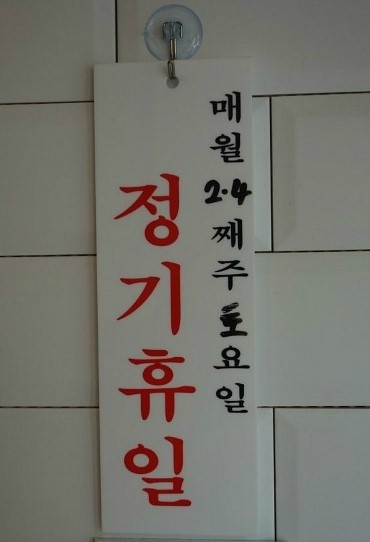 매월 2·4째주 토요일
정기휴일